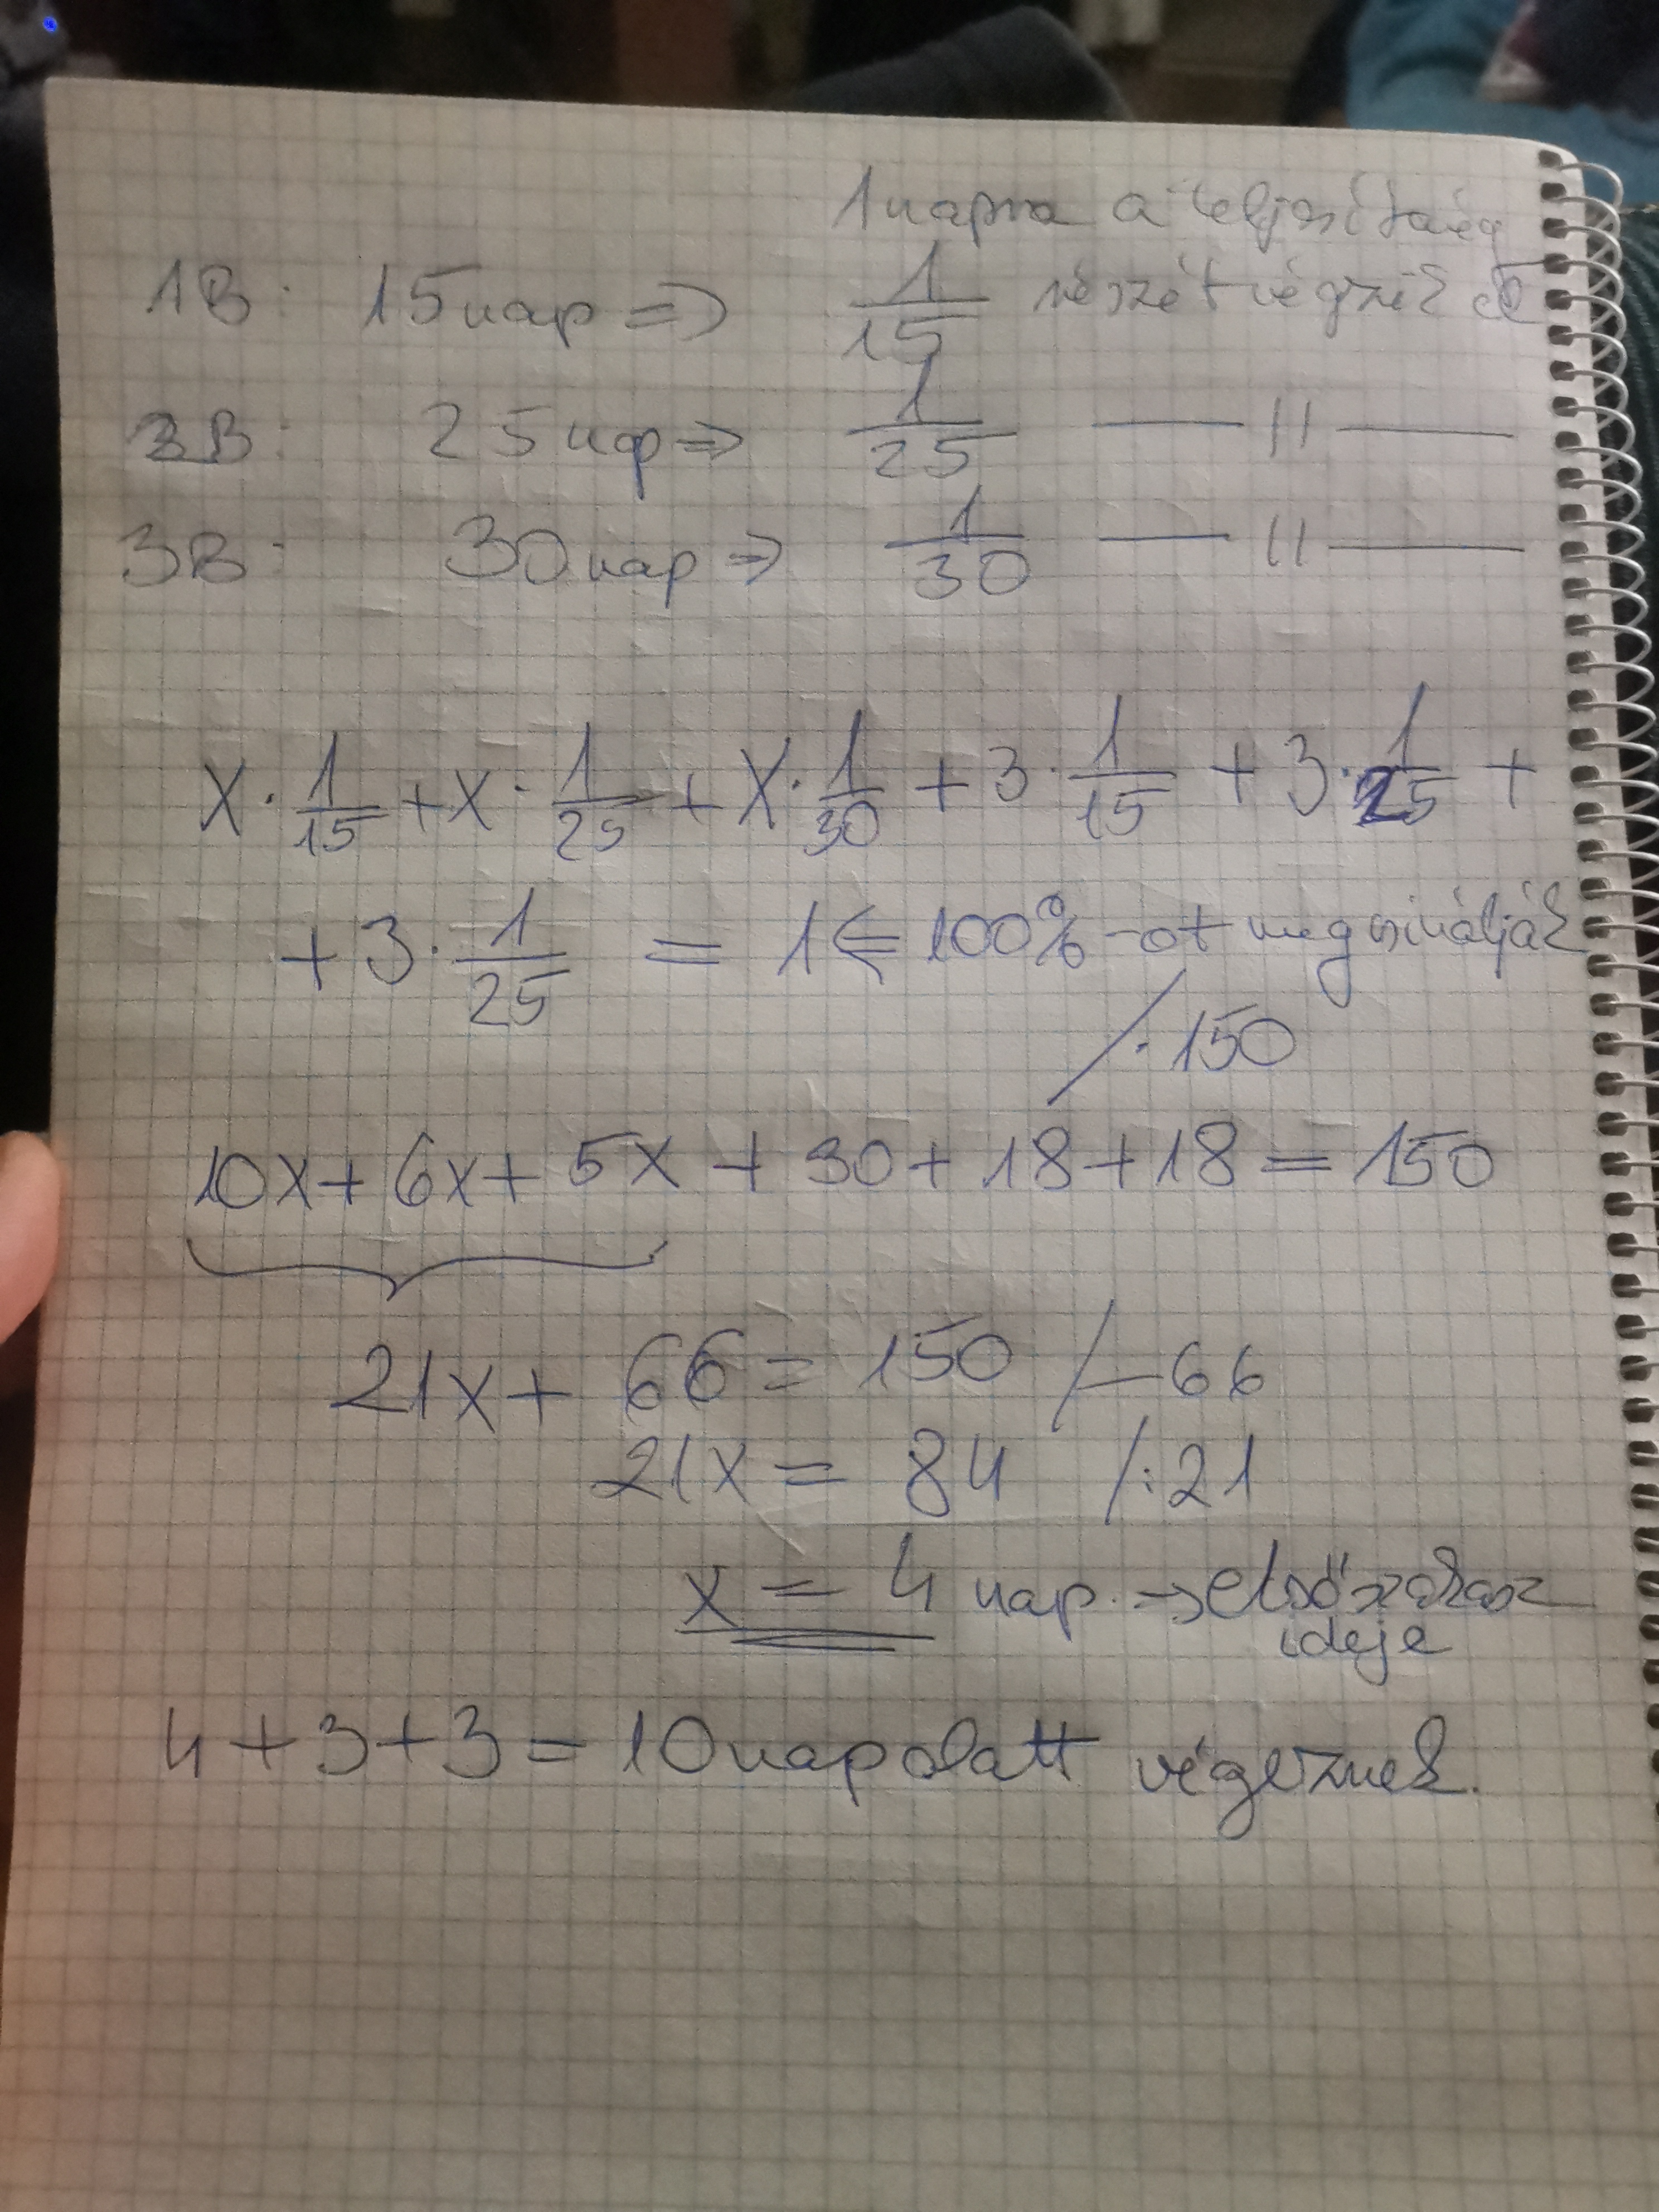 1 napra a teljesítmény
1B: 15 nap ⇒ 1/15 részét végzik el
2B: 25 nap ⇒ 1/25 — 〃 —
3B: 30 nap ⇒ 1/30 — 〃 —
x · 1/15 + x · 1/25 + x · 1/30 + 3 · 1/15 + 3 · 1/25 +
+ 3 · 1/25 = 1 ⇐ 100%-ot megcsinálják
/ · 150
10x + 6x + 5x + 30 + 18 + 18 = 150
21x + 66 = 150 / – 66
21x = 84 / : 21
x = 4 nap. → első szakasz
ideje
4 + 3 + 3 = 10 nap alatt végeznek.